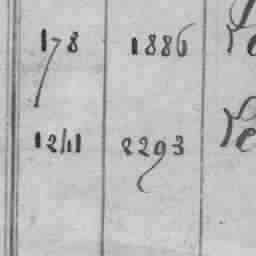 178 1886
12/11 2293